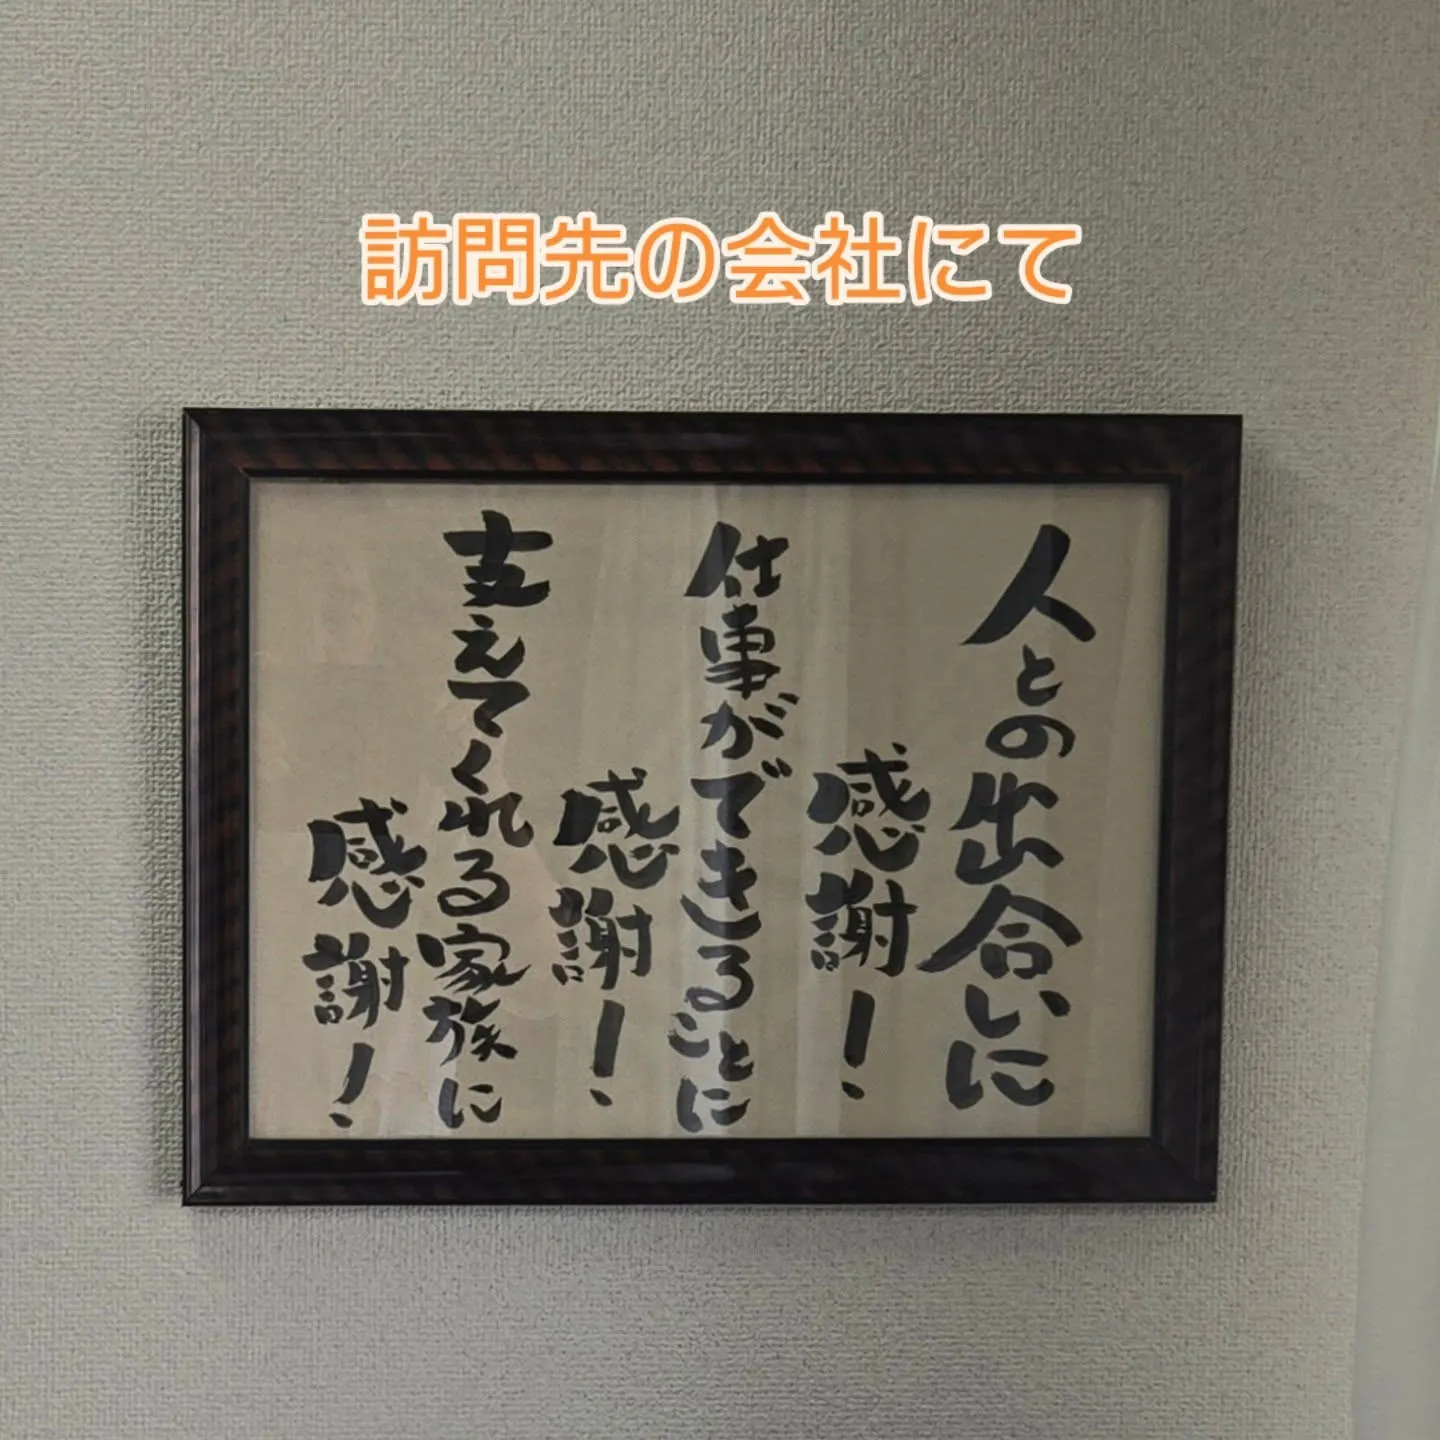 訪問先の会社にて
人との出合いに
感謝！
仕事ができることに
感謝！
支えてくれる家族に
感謝！